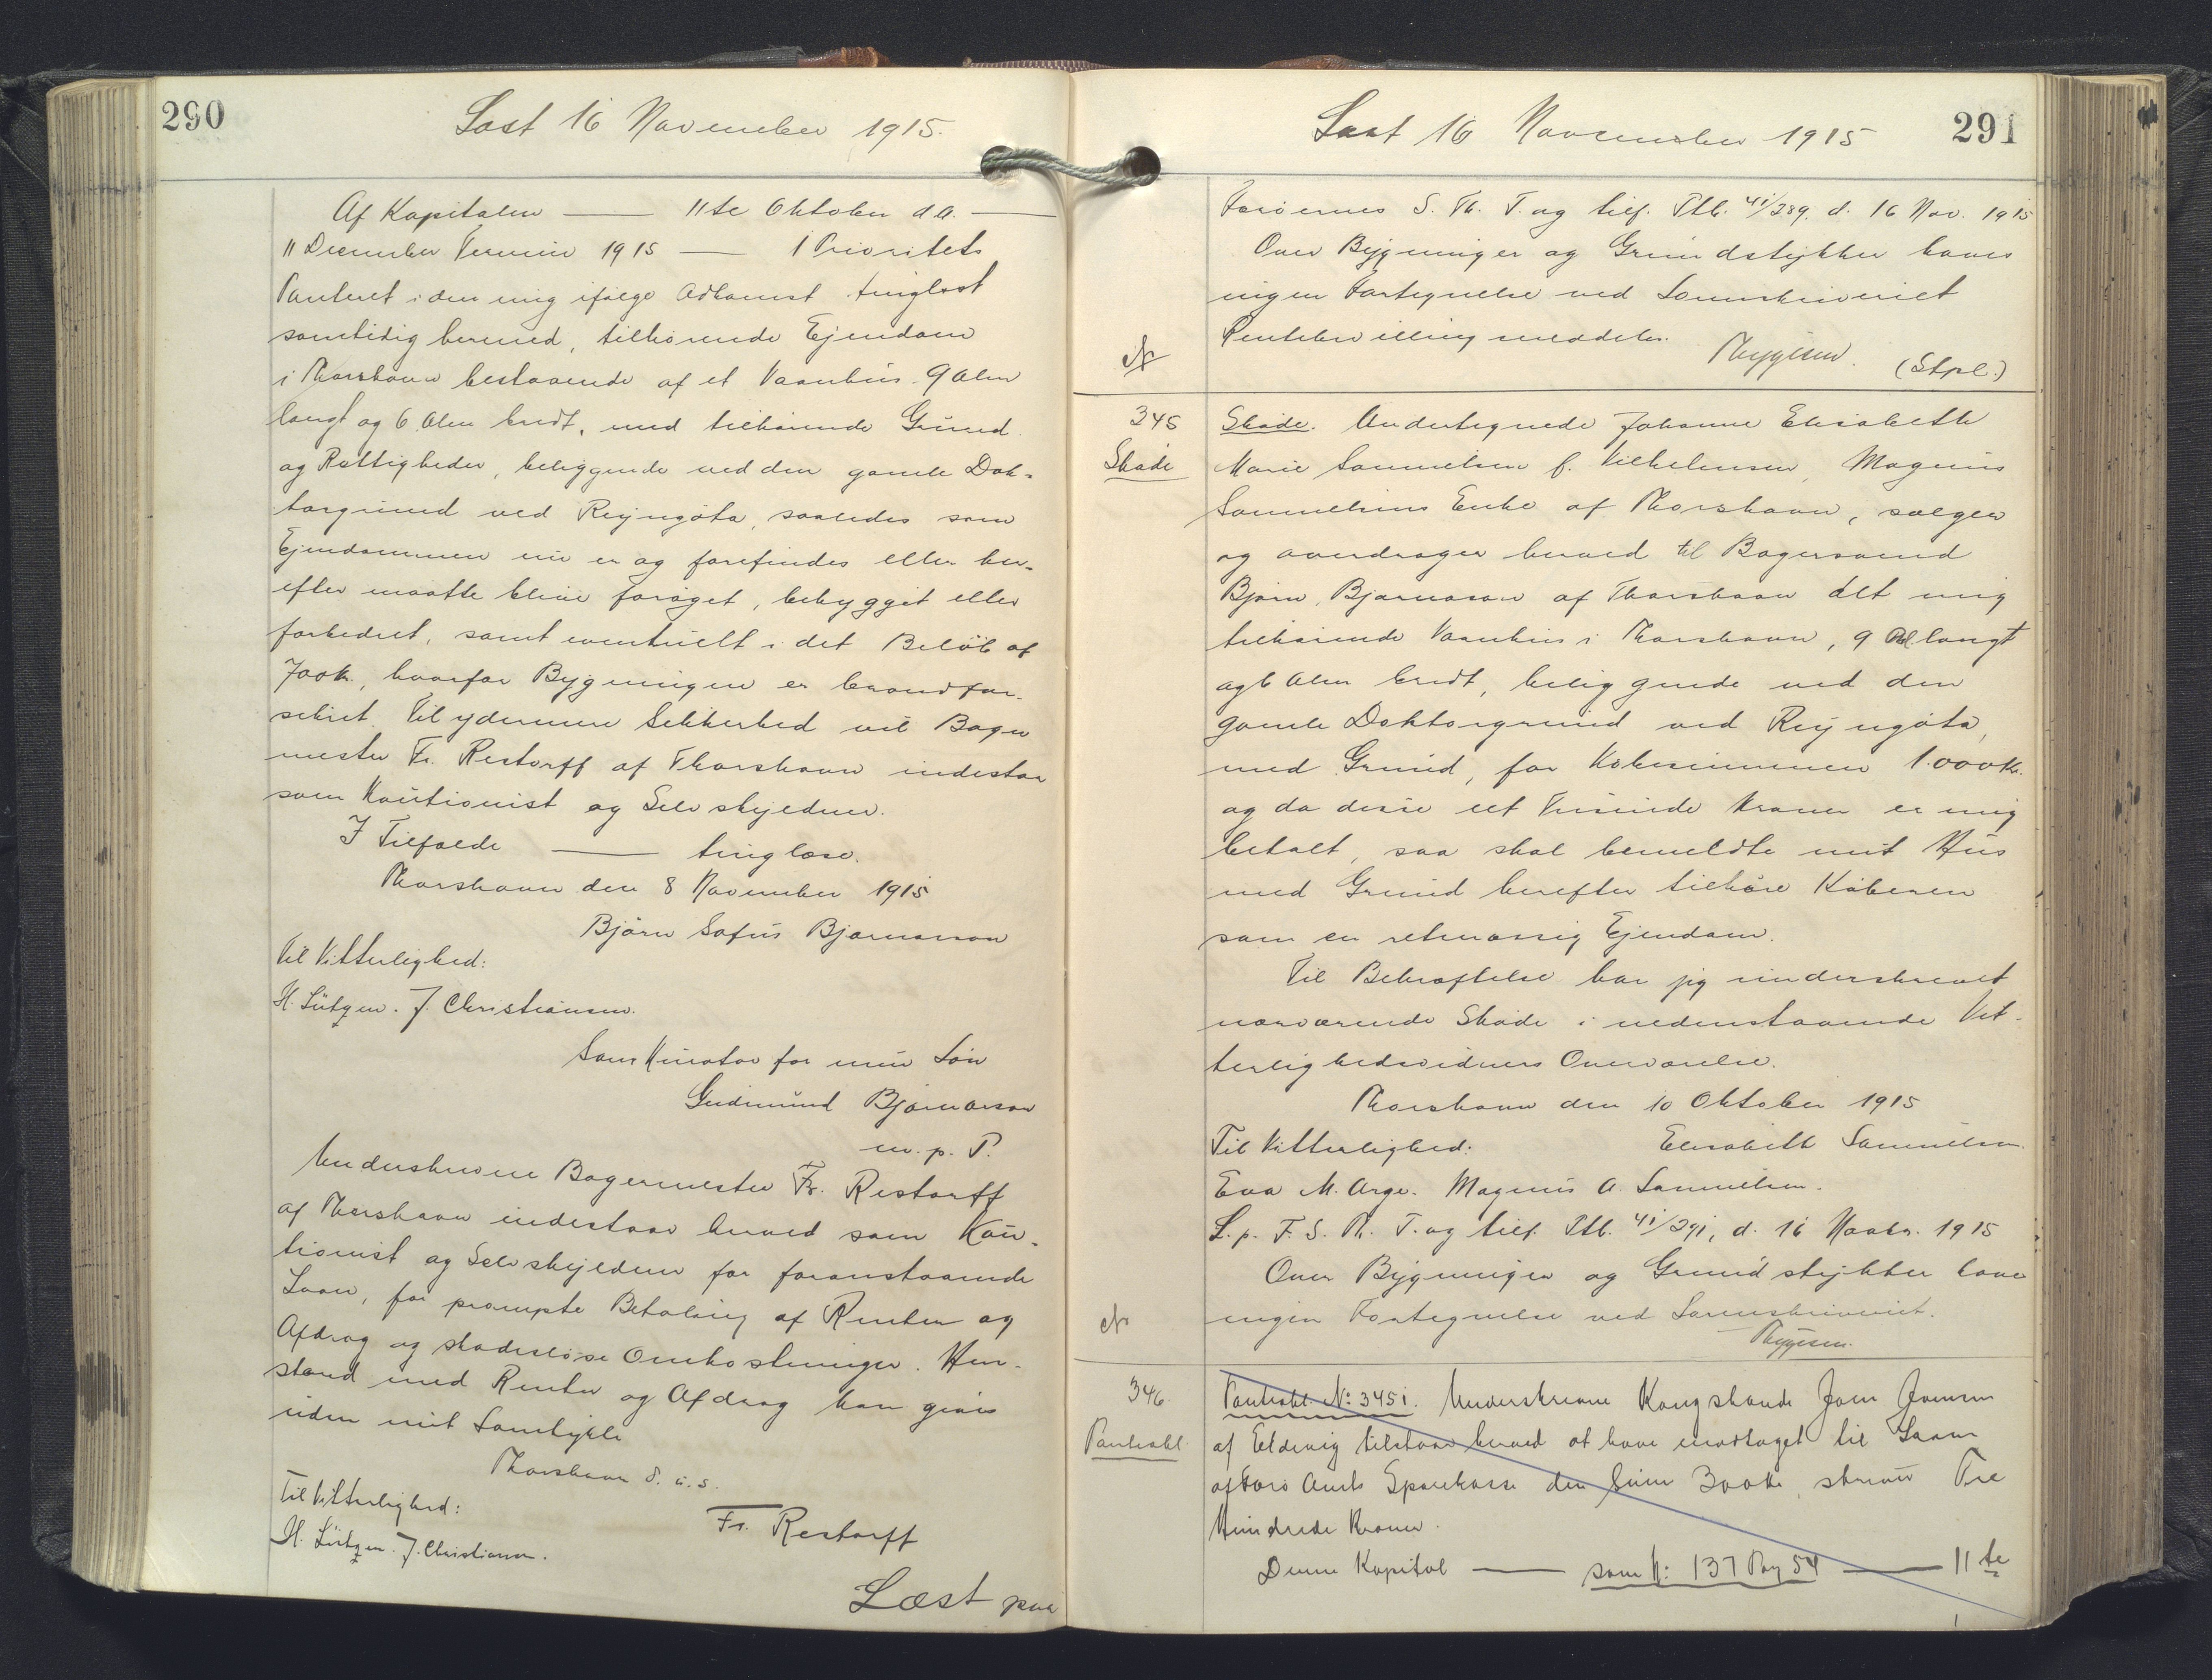 290
Læst 16 November 1915.
Af Kapitalen — 11te Oktober d.A. —
11 December Termin 1915 — 1 Prioritets
Panteret i den mig ifølge Adkomst tinglæst
samtidig hermed, tilhørende Ejendom
i Thorshavn bestaaende af et Vaanhus 9 Alen
langt og 6 Alen bredt, med tilhørende Grund
og Rettigheder, beliggende ved den gamle Dok-
torgrund ved Reyngøta, saaledes som
Ejendommen nu er og forefindes eller her-
efter maatte blive forøget, bebygget eller
forbedret, samt eventuelt i det Beløb af
700 Kr., hvorfor Bygningen er brandfor-
sikret. Til ydermere Sikkerhed vil Bager
mester Fr. Restorff af Thorshavn indestaa
som Kautionist og Selvskyldner.
I Tilfælde — tinglæse.
Thorshavn den 8 November 1915
Björn Sofus Bjarnason
Til Vitterlighed:
H. Lützen. J. Christiansen.
Som Kurator for min Søn
Gudmund Bjarnason
m. p. P.
Underskrevne Bagermester Fr. Restorff
af Thorshavn indestaar herved som Kau-
tionist og Selvskyldner for foranstaaende
Laan, for prompte Betaling af Renter og
Afdrag og skadesløse Omkostninger. Hen-
stand med Renter og Afdrag kan gives
uden mit Samtykke
Thorshavn d. u. s.
Til Vitterlighed:
Fr. Restorff
H. Lützen. J. Christiansen.
Læst paa
Læst 16 November 1915
291
Færøernes S. Th. T. og tilf. Ptb. 41/289, d. 16 Nov. 1915
Over Bygninger og Grundstykker haves
ingen Fortegnelse ved Sorenskriveriet
Rentebevilling meddeles.
Thygesen. (Stpl.)
345
Skøde
Skøde. Undertegnede Johanne Elisabeth
Marie Samuelsen f. Vilhelmsen, Magnus
Samuelsens Enke af Thorshavn, sælger
og overdrager herved til Bagersvend
Bjørn Bjarnason af Thorshavn det mig
tilhørende Vaanhus i Thorshavn, 9 Al. langt
og 6 Alen bredt, beliggende ved den
gamle Doktorgrund ved Reyngøta,
med Grund, for Købesummen 1.000 Kr.
og da disse eet Tusinde Kroner er mig
betalt, saa skal bemeldte mit Hus
med Grund herefter tilhøre Køberen
som en retmæssig Ejendom.
Til Bekræftelse har jeg underskrevet
nærværende Skøde i nedenstaaende Vit-
terlighedsvidners Overværelse.
Thorshavn den 10 Oktober 1915
Til Vitterlighed: Elisabeth Samuelsen.
Eva M. Arge. Magnus A. Samuelsen.
L. p. F. S. Th. T. og tilf. Ptb. 41/291, d. 16 Novbr. 1915
Over Bygninger og Grundstykker haves
ingen Fortegnelse ved Sorenskriveriet.
Thygesen.
346.
Panteobl.
Panteobl. No: 3451. Underskrevne Kongsbonde Joen Joensen
af Eldevig tilstaar herved at have modtaget til Laans
af Færø Amts Sparekasse den Sum 300 Kr, skriver Tre
Hundrede Kroner.
Denne Kapital — som N: 137 Pag 54 — 11te